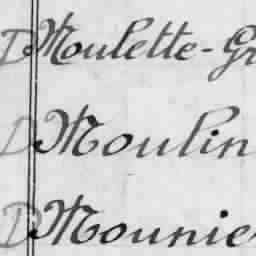 D Moulette-Gr
D Moulin
D Mounier